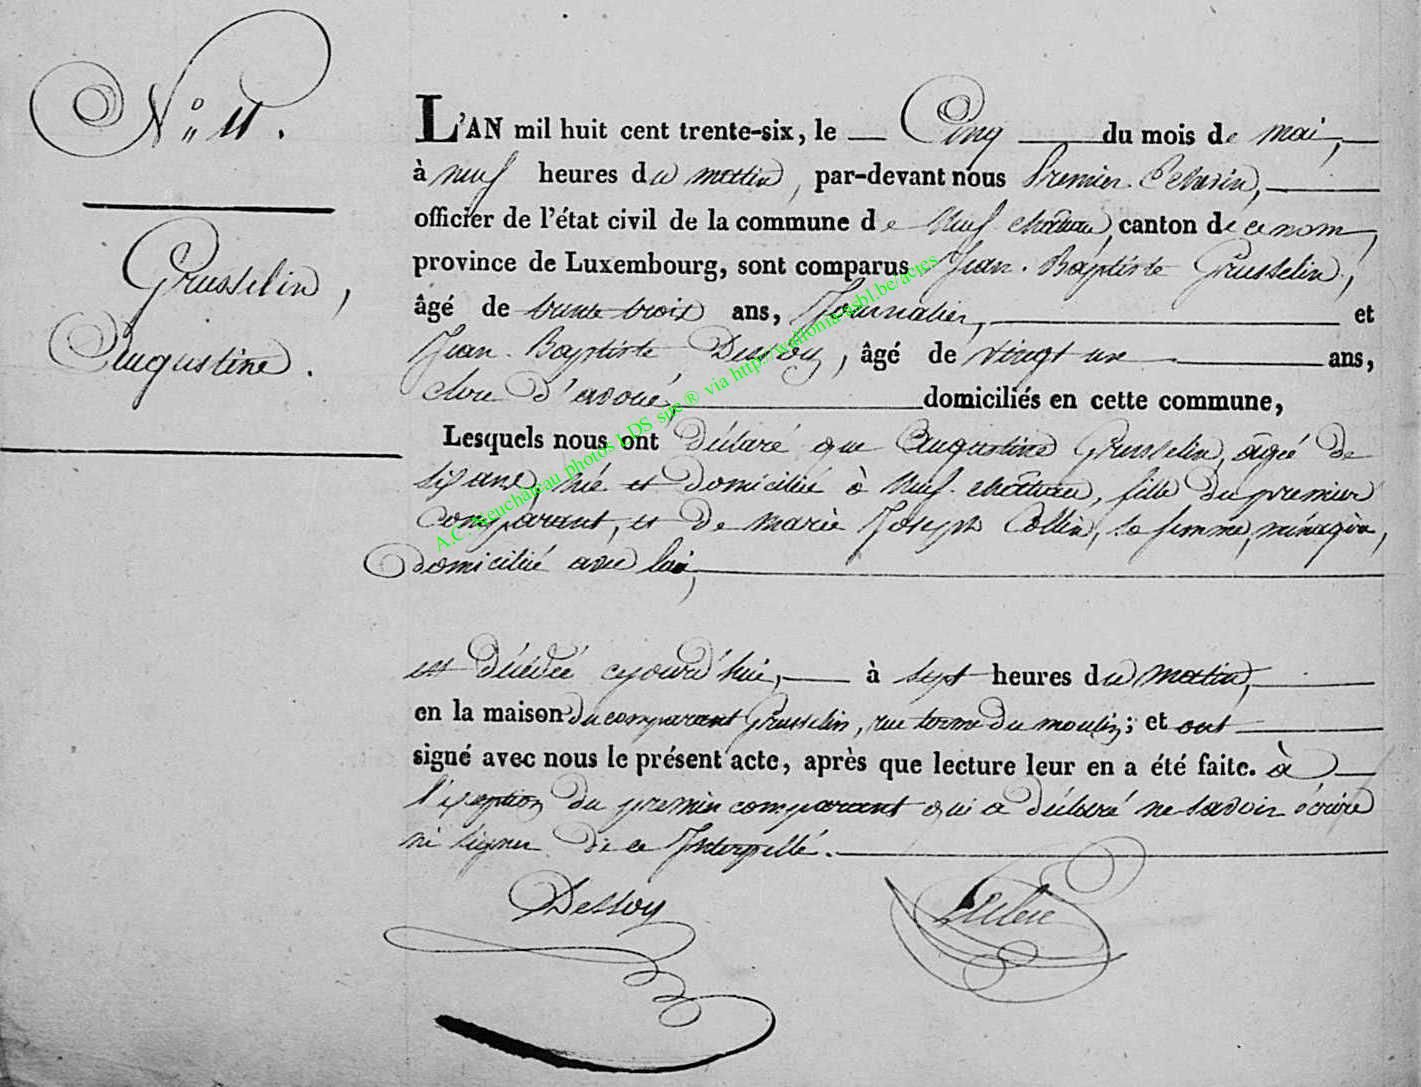 N° 11.
Grusselin,
Augustine.
L'AN mil huit cent trente-six, le Cinq du mois de mai,
à neuf heures du matin, par-devant nous Premier
officier de l'état civil de la commune de Neufchâteau, canton de ce nom,
province de Luxembourg, sont comparus Jean-Baptiste Grusselin,
âgé de trente trois ans, Journalier, et
Jean-Baptiste Dessoy, âgé de vingt un ans,
clerc d'avoué, domiciliés en cette commune,
Lesquels nous ont déclaré que Augustine Grusselin, âgée de
six ans, née et domiciliée à Neufchâteau, fille du premier
comparant, et de marie Joseph Collin, sa femme, ménagère,
domiciliée avec lui,
est décédée cejourd'hui, à sept heures du matin,
en la maison du comparant Grusselin, rue du moulin; et ont
signé avec nous le présent acte, après que lecture leur en a été faite. à
l'exception du premier comparant qui a déclaré ne savoir écrire
ni signer de ce Interpellé.
Dessoy
A.C. Neuchâteau photos LDS sprl ® via http://wallonia-asbl.be/actes